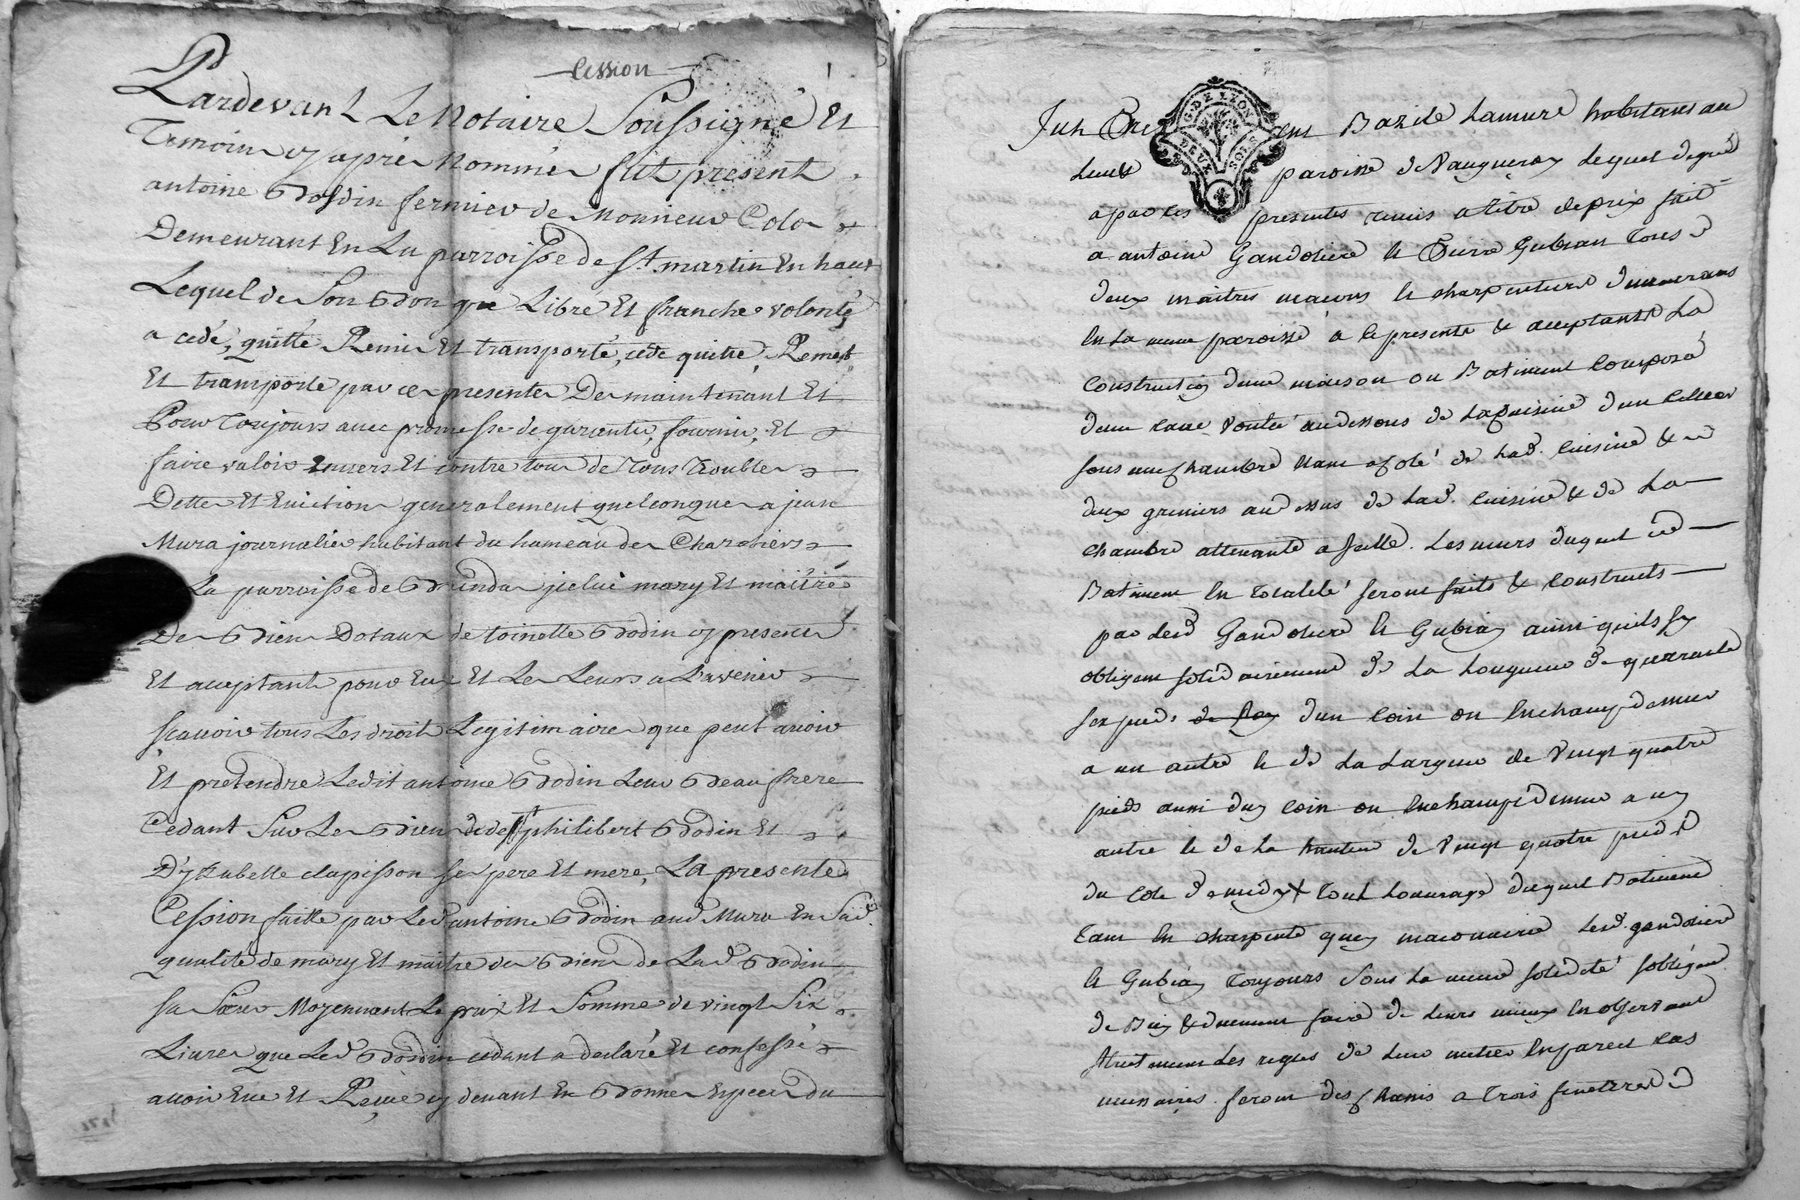 Cession
Pardevant Le Notaire Soussigné Et
Temoins cy apres Nommés fut present
antoine Brodin fermier de Monsieur Colo
Demeurant En La parroisse de St. martin En haut
Lequel de Son Bon gré Libre Et franche volonté
a cedé, quitté Remis Et transporté, cede quitte, Remest
Et transporte par ces presentes Des maintenant Et
Pour Toujours avec promesse de garentir, fournir, Et
faire valoir Envers Et contre tous de Tous Troubles
Dettes Et Eviction generalement quelconque a jean
Mura journalier habitant du hameau des Charchiers
La parroisse de Brinda jcelui mary Et maitre
Des Biens Dotaux de toinette Brodin cy presente
Et acceptants pour Eux Et Les Leurs a L'avenir
scavoir tous Les droits Legitimaires que peut avoir
Et pretendre Ledit antoine Brodin Leur Beau frere
Cedant Sur Les Biens de philibert Brodin Et
D'yzabelle clapisson ses pere Et mere, La presente
Cession faitte par Led antoine Brodin aud Mura En Sad
qualité de mary Et maitre des Biens de Lad Brodin
sa Sœur Moyennant Le prix Et Somme de vingt Six
Livres que Led Brodin cedant a declaré Et confessé
avoir Eue Et Reçue cy devant En Bonnes Especes du
G. DE LYON
DEUX SOLS
Bazile Lamure habitans au
paroisse de Vaugneray Lequel degré
a par ces presentes remis a titre de prix fait
a antoine Gandoliere & Pierre Gubian Tous
deux maitres macons & charpentiers demeurans
En La meme paroisse a ce presents & acceptants La
Construction d'une maison ou Batiment Composé
d'une cave Voutée audessous de La Cuisine d'un Cellier
sous une chambre de Lad. Cuisine & de
deux greniers au dessus de Lad. Cuisine & de La
chambre attenante a jcelle. Les murs duquel
Batiment En Totalité seront faits & Construits
par Lesd Gandoliere & Gubian ainsi quils sy
obligent solidairement de La Longueur de quarante
six pieds d'un Coin ou
a un autre & de La Largeur de Vingt quatre
pieds aussi d'un Coin ou a un
autre & de La hauteur de Vingt quatre pieds
du Cote de midy Tout Louvrage duquel Batiment
tant En charpente quen maconnerie Lesd. gandoliere
& Gubian Toujours Sous La meme solidité sobligent
de Bien & duement faire de Leurs mieux En observant
Les regles de Leur metier En pareil Cas
seront des chassis a Trois fenetres